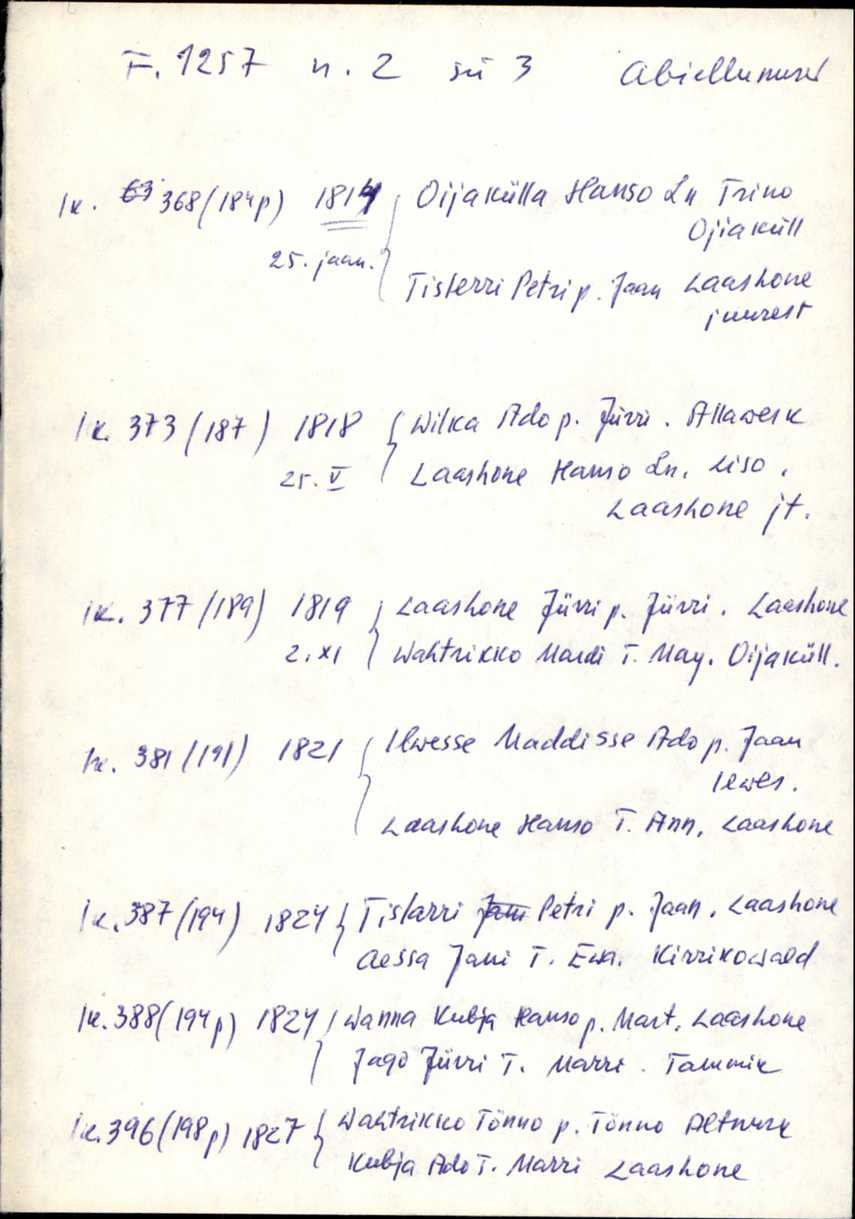 F. 1257 n. 2 sü 3 Abiellumised
lk. 63 368 (184p) 1814 Oijakülla Hanso Ln Trino
Ojiaküll
25. jaan. Tisterri Petri p. Jaan Laashone
juurest
lk. 373 (187) 1818 Wilka Ado p. Jürri. Allawerk
25. V Laashone Hanso Ln. Liso,
Laashone jt.
lk. 377 (189) 1819 Laashone Jürri p. Jürri. Laashone
2. XI Wahtrikko Mardi T. May. Oijaküll.
lk. 381 (191) 1821 Ilwesse Maddisse Ado p. Jaan
Ilwes.
Laashone Hanso T. Ann, Laashone
lk. 387 (194) 1824 Tislarri Jani Petri p. Jaan, Laashone
Aessa Jani T. Ewa. Kirrikowald
lk. 388 (194p) 1824 Wanna Kubja Hanso p. Mart, Laashone
Jago Jürri T. Marri. Tammik
lk. 396 (198p) 1827 Wahtrikko Tönno p. Tönno
Kubja Ado T. Marri Laashone